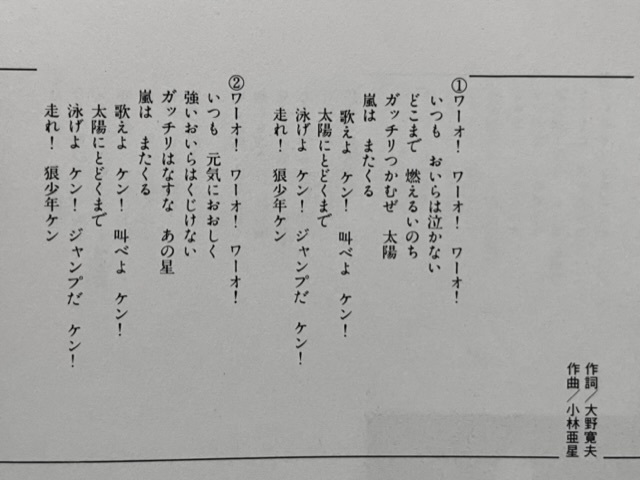 作詞／大野寛夫
作曲／小林亜星
①ワーオ！　ワーオ！　ワーオ！
いつも　おいらは泣かない
どこまで　燃えるいのち
ガッチリつかむぜ　太陽
嵐は　またくる
歌えよ　ケン！　叫べよ　ケン！
太陽にとどくまで
泳げよ　ケン！　ジャンプだ　ケン！
走れ！　狼少年ケン
②ワーオ！　ワーオ！　ワーオ！
いつも　元気におおしく
強いおいらはくじけない
ガッチリはなすな　あの星
嵐は　またくる
歌えよ　ケン！　叫べよ　ケン！
太陽にとどくまで
泳げよ　ケン！　ジャンプだ　ケン！
走れ！　狼少年ケン